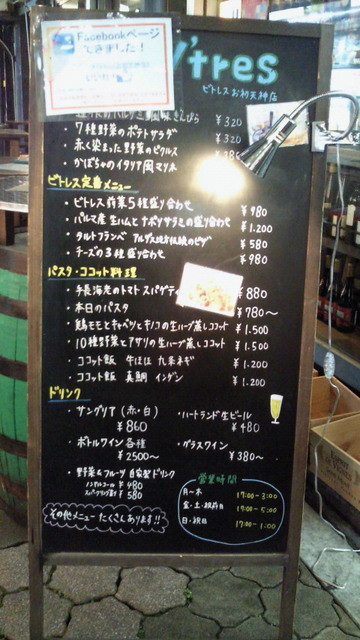 Facebookページ
できました!
y'tres
ピトレスお初天神店
¥320
・7種野菜のポテトサラダ ¥320
・赤く染まった野菜のピクルス
・かぼちゃのイタリア風マリネ
ピトレス定番メニュー
・ピトレス前菜5種盛り合わせ ¥980
・パルマ産生ハムとナポリサラミの盛り合わせ ¥1.200
・タルトフランベ アルザス地方伝統のピザ ¥580
・チーズの3種盛り合わせ ¥980
パスタ・ココット料理
・手長海老のトマトスパゲティ ¥880
・本日のパスタ ¥780〜
・鶏モモとキャベツとキノコの生ハーブ蒸しココット ¥1.500
・10種野菜とアサリの生ハーブ蒸しココット ¥1.500
・ココット飯 牛ほほ 九条ネギ ¥1.200
・ココット飯 真鯛 インゲン ¥1.200
ドリンク
・サングリア(赤・白) ¥860
・ハートランド生ビール ¥480
・ボトルワイン各種 ¥2500〜
・グラスワイン ¥380〜
・野菜&フルーツ 自家製ドリンク
ノンアルコール ¥480
スパークリング割り ¥580
その他メニューたくさんあります!!
営業時間
月〜木 17:00-3:00
金・土・祝前日 17:00-5:00
日・祝日 17:00-1:00